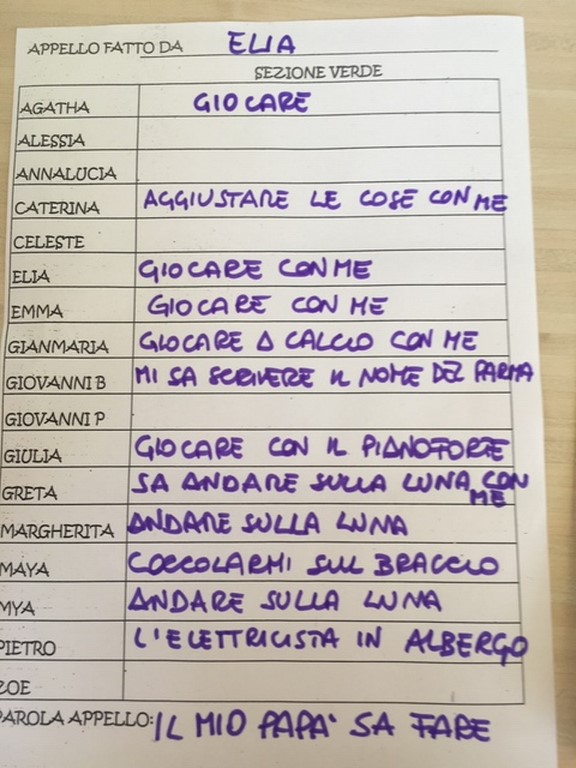 APPELLO FATTO DA ELIA
SEZIONE VERDE
AGATHA GIOCARE
ALESSIA
ANNALUCIA
CATERINA AGGIUSTARE LE COSE CON ME
CELESTE
ELIA GIOCARE CON ME
EMMA GIOCARE CON ME
GIANMARIA GIOCARE A CALCIO CON ME
GIOVANNI B MI SA SCRIVERE IL NOME DEL PARMA
GIOVANNI P
GIULIA GIOCARE CON IL PIANOFORTE
GRETA SA ANDARE SULLA LUNA CON
ME
MARGHERITA ANDARE SULLA LUNA
MAYA COCCOLARMI SUL BRACCIO
MYA ANDARE SULLA LUNA
PIETRO L'ELETTRICISTA IN ALBERGO
ZOE
PAROLA APPELLO: IL MIO PAPA' SA FARE